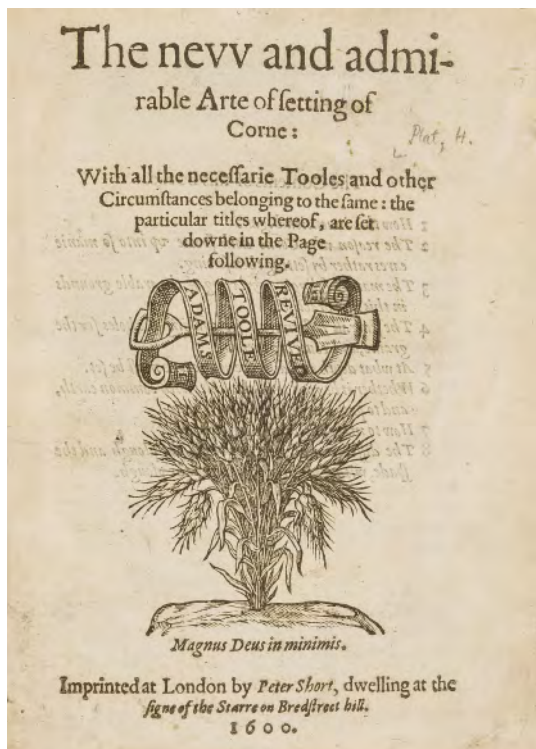 The nevv and admi-
rable Arte of ſetting of
Corne:
Plat, H.
With all the neceſſarie Tooles and other
Circumſtances belonging to the ſame: the
particular titles whereof, are ſet
downe in the Page
following.
ADAMS TOOLE REVIVED
Magnus Deus in minimis.
Imprinted at London by Peter Short, dwelling at the
ſigne of the Starre on Bredſtreet hill.
1600.